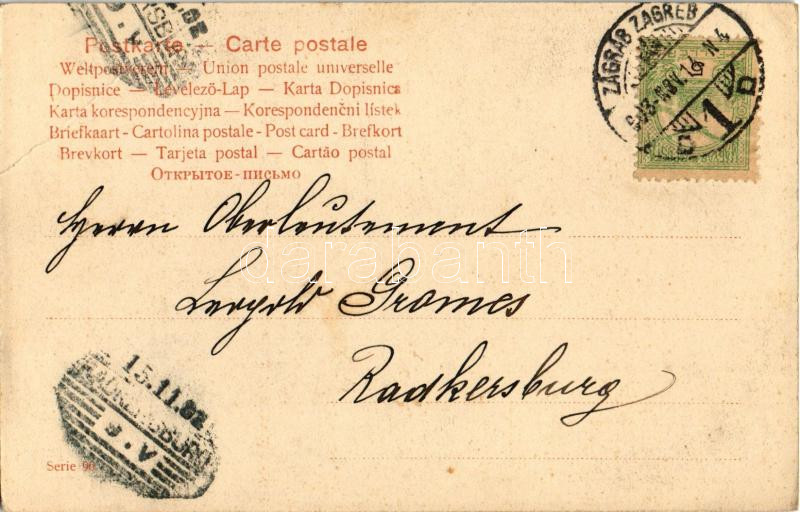 Postkarte — Carte postale
Weltpostverein — Union postale universelle
Dopisnice — Levelező-Lap — Karta Dopisnica
Karta korespondencyjna — Korespondenční lístek
Briefkaart - Cartolina postale - Post card - Brefkort
Brevkort — Tarjeta postal — Cartão postal
Открытое-письмо
ZÁGRÁB ZAGREB
1
D
Herrn Oberleutement
Leopold Gromes
Radkersburg
darabanth
15.11.02
RADKERSBURG
9.V
Serie 90